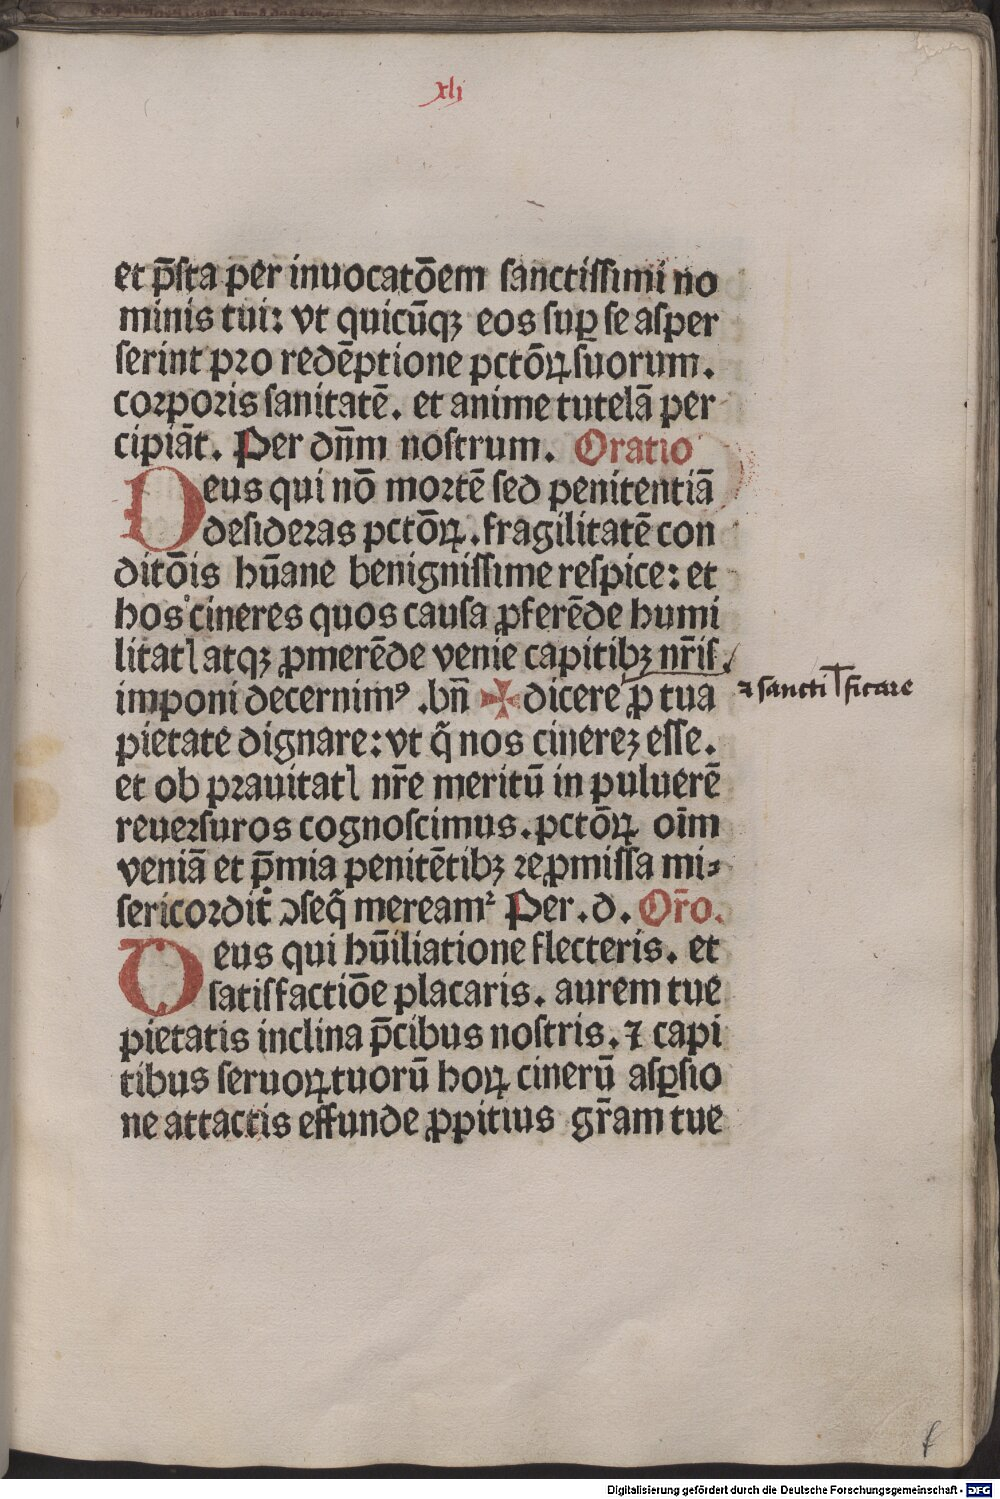 xli
et p̄sta per inuocatōem sanctissimi no
minis tui: vt quicūqꝫ eos suꝑ se asper
serint pro redēptione pctōꝝ suorum.
corporis sanitatē. et anime tutelā per
cipiāt. Per dn̄m nostrum. Oratio
Deus qui nō mortē sed penitentiā
desideras pctōꝝ. fragilitatē con
ditōis hūane benignissime respice: et
hos cineres quos causa ꝓferēde humi
litatꝭ atqꝫ ꝓmerēde venie capitibꝫ nr̄is
imponi decernimꝰ. bn̄ ✠ dicere ꝓ tua ⁊ sancti † ficare
pietate dignare: vt q̄ nos cinereꝫ esse.
et ob prauitatꝭ nr̄e meritū in puluerē
reuersuros cognoscimus. pctōꝝ oīm
veniā et p̄mia penitētibꝫ reꝓmissa mi⸗
sericordit̄ ꝯseq̄ mereamᷣ Per. d. Or̄o.
Deus qui hūiliatione flecteris. et
satisfactiōe placaris. aurem tue
pietatis inclina p̄cibus nostris. ⁊ capi
tibus seruoꝝ tuorū hoꝝ cinerū asꝑsio
ne attactis effunde ꝓpitius gr̄am tue
f
Digitalisierung gefördert durch die Deutsche Forschungsgemeinschaft - DFG